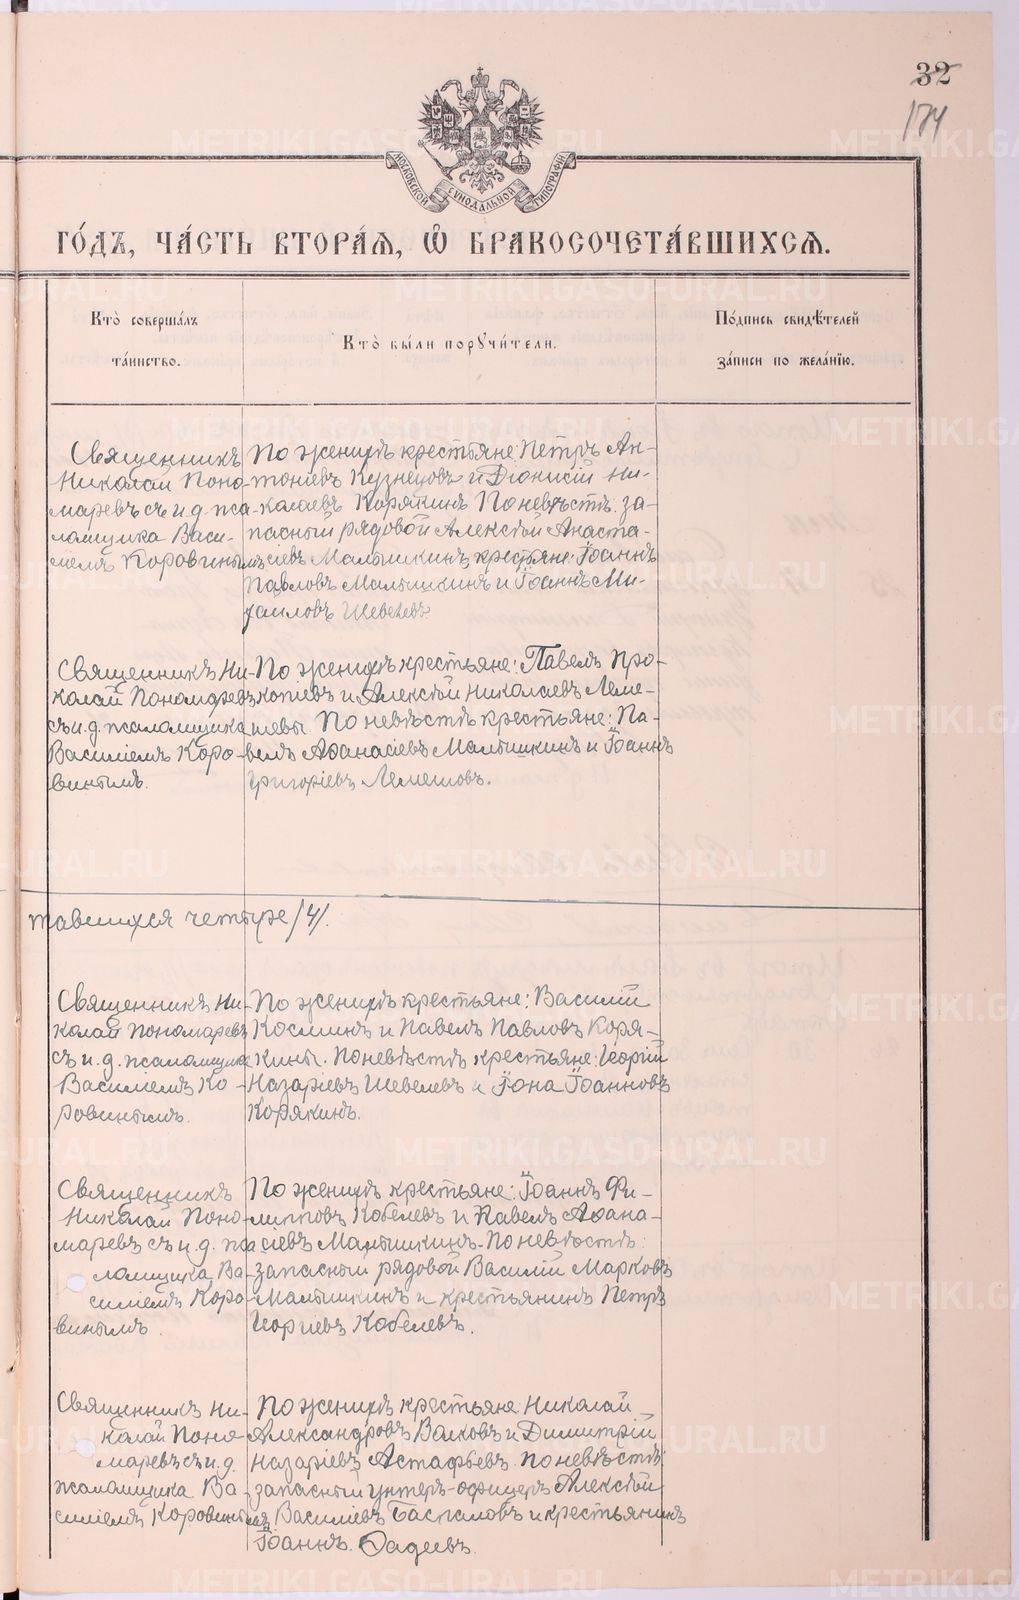 32
174
МОСКОВСКОЙ СѴНОДАЛЬНОЙ ТИПОГРАФІИ
ГО́ДЪ, ЧА́СТЬ ВТОРА́Ѧ, Ѽ БРАКОСОЧЕТА́ВШИХСѦ.
Кто̀ соверша́лъ
та́инство.
Кто̀ бы́ли порꙋчи́тели.
По́дпись свидѣ́телей
за́писи по жела́нїю.
Священникъ
Николай Поно-
маревъ съ и. д. пса-
ломщика Васи-
ліемъ Коровинымъ
По женихѣ крестьяне: Петръ Ан-
тоніевъ Кузнецовъ и Діонисій Ни-
колаевъ Корякинъ. По невѣстѣ: за-
пасный рядовой Алексѣй Анаста-
сіевъ Малышкинъ, крестьяне: Іоаннъ
Павловъ Малышкинъ и Іоаннъ Ми-
хаиловъ Шевелевъ
Священникъ Ни-
колай Пономаревъ
съ и. д. псаломщика
Василіемъ Коро-
винымъ.
По женихѣ крестьяне: Павелъ Про-
копіевъ и Алексѣй Николаевъ Леме-
шевы. По невѣстѣ крестьяне: Па-
велъ Аѳанасіевъ Малышкинъ и Іоаннъ
Григоріевъ Лемешовъ.
тавшихся четыре /4/.
Священникъ Ни-
колай Пономаревъ
съ и. д. псаломщика
Василіемъ Ко-
ровинымъ.
По женихѣ крестьяне: Василій
Косминъ и Павелъ Павловъ Коря-
кины. По невѣстѣ крестьяне: Георгій
Назаріевъ Шевелевъ и Іона Іоанновъ
Корякинъ.
Священникъ
Николай Поно-
маревъ съ и. д. пса
ломщика Ва-
силіемъ Коро-
винымъ.
По женихѣ крестьяне: Іоаннъ Фи-
липповъ Кобелевъ и Павелъ Аѳана-
сіевъ Малышкинъ. По невѣстѣ:
запасный рядовой Василій Марковъ
Малышкинъ и крестьянинъ Петръ
Георгіевъ Кобелевъ.
Священникъ Ни-
колай Поно-
маревъ съ и. д.
псаломщика Ва-
силіемъ Коровинымъ
По женихѣ крестьяне: Николай
Александровъ Волковъ и Димитрій
Назаріевъ Астафьевъ. По невѣстѣ
запасный унтеръ-офицеръ Алексѣй
Василіевъ Баспаловъ и крестьянинъ
Іоаннъ Ѳадеевъ
METRIKI.GASO-URAL.RU